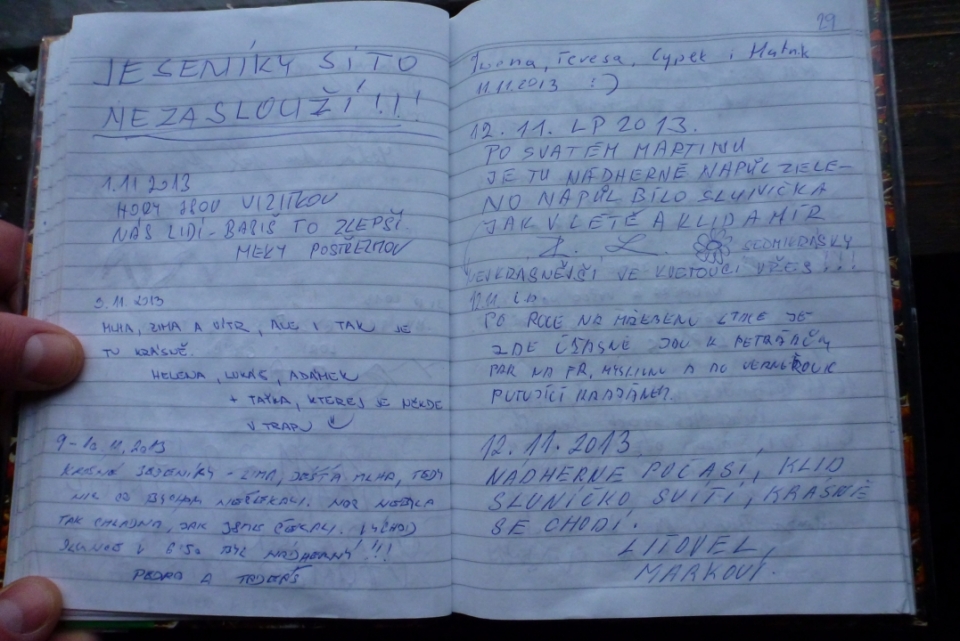 JESENÍKY SI TO
NEZASLOUŽÍ!!!
1.11 2013
HORY JSOU VIZITKOU
NÁS LIDÍ - BABIŠ TO ZLEPŠÍ.
MEKY POSTŘELMOV
3.11.2013
MLHA, ZIMA A VÍTR, ALE I TAK JE
TU KRÁSNĚ.
HELENA, LUKÁŠ, ADÁMEK
+ TAŤKA, KTEREJ JE NĚKDE
V TRAPU
9-10.11.2013
KRÁSNÉ JESENÍKY - ZIMA, DÉŠŤ A MLHA, TEDY
NIC CO BYCHOM NEČEKALI. NOC NEBYLA
TAK CHLADNÁ, JAK JSME ČEKALI.
V 6:50 BYL NÁDHERNÝ!!!
PEDRO A
29
Ivona, Teresa, Cypek i
11.11.2013 :)
12. 11. LP 2013.
PO SVATÉM MARTINU
JE TU NÁDHERNĚ NAPŮL ZELE-
NO NAPŮL BÍLO SLUNÍČKA
JAK V LÉTĚ A KLID A MÍR
Z. L. SEDMIKRÁSKY
NEJKRÁSNĚJŠÍ VE KVETOUCÍ VŘES!!!
12.11.
PO ROCE NA HŘEBENU
ZDE ÚŽASNĚ JDU K PETRÁČKŮM
PAK NA
PUTUJÍCÍ
12.11.2013
NÁDHERNÉ POČASÍ, KLID
SLUNÍČKO SVÍTÍ, KRÁSNĚ
SE CHODÍ.
LITOVEL,
MARKOVI.